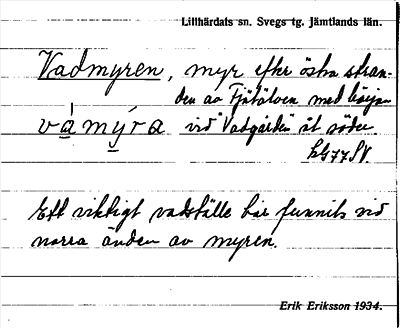 Lillhärdats sn. Svegs tg. Jämtlands län.
Vadmyren, myr efter östra stran-
den av Fjätälven med början
vámýra vid "Vadgården" åt söder.
Ett viktigt vadställe har funnits vid
norra änden av myren.
Erik Eriksson 1934.